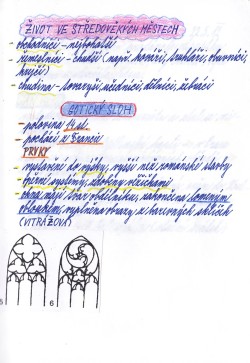 ŽIVOT VE STŘEDOVĚKÝCH MĚSTECH
- obchodníci - nejbohatší
- řemeslníci - chudší (např. kováři, truhláři, obuvníci,
krejčí)
- chudina - tovaryši, učedníci, dělníci, žebráci
GOTICKÝ SLOH
- polovina 14. st.
- pochází z Francie
PRVKY
- vystavění do výšky, vyšší než románské stavby
- opěrné systémy, zdobeny věžičkami
- okna mají tvar obdélníku, zakončena lomeným
obloukem, vyplněna obrazy z barevných sklíček
(VITRÁŽOVÁ)
5 6